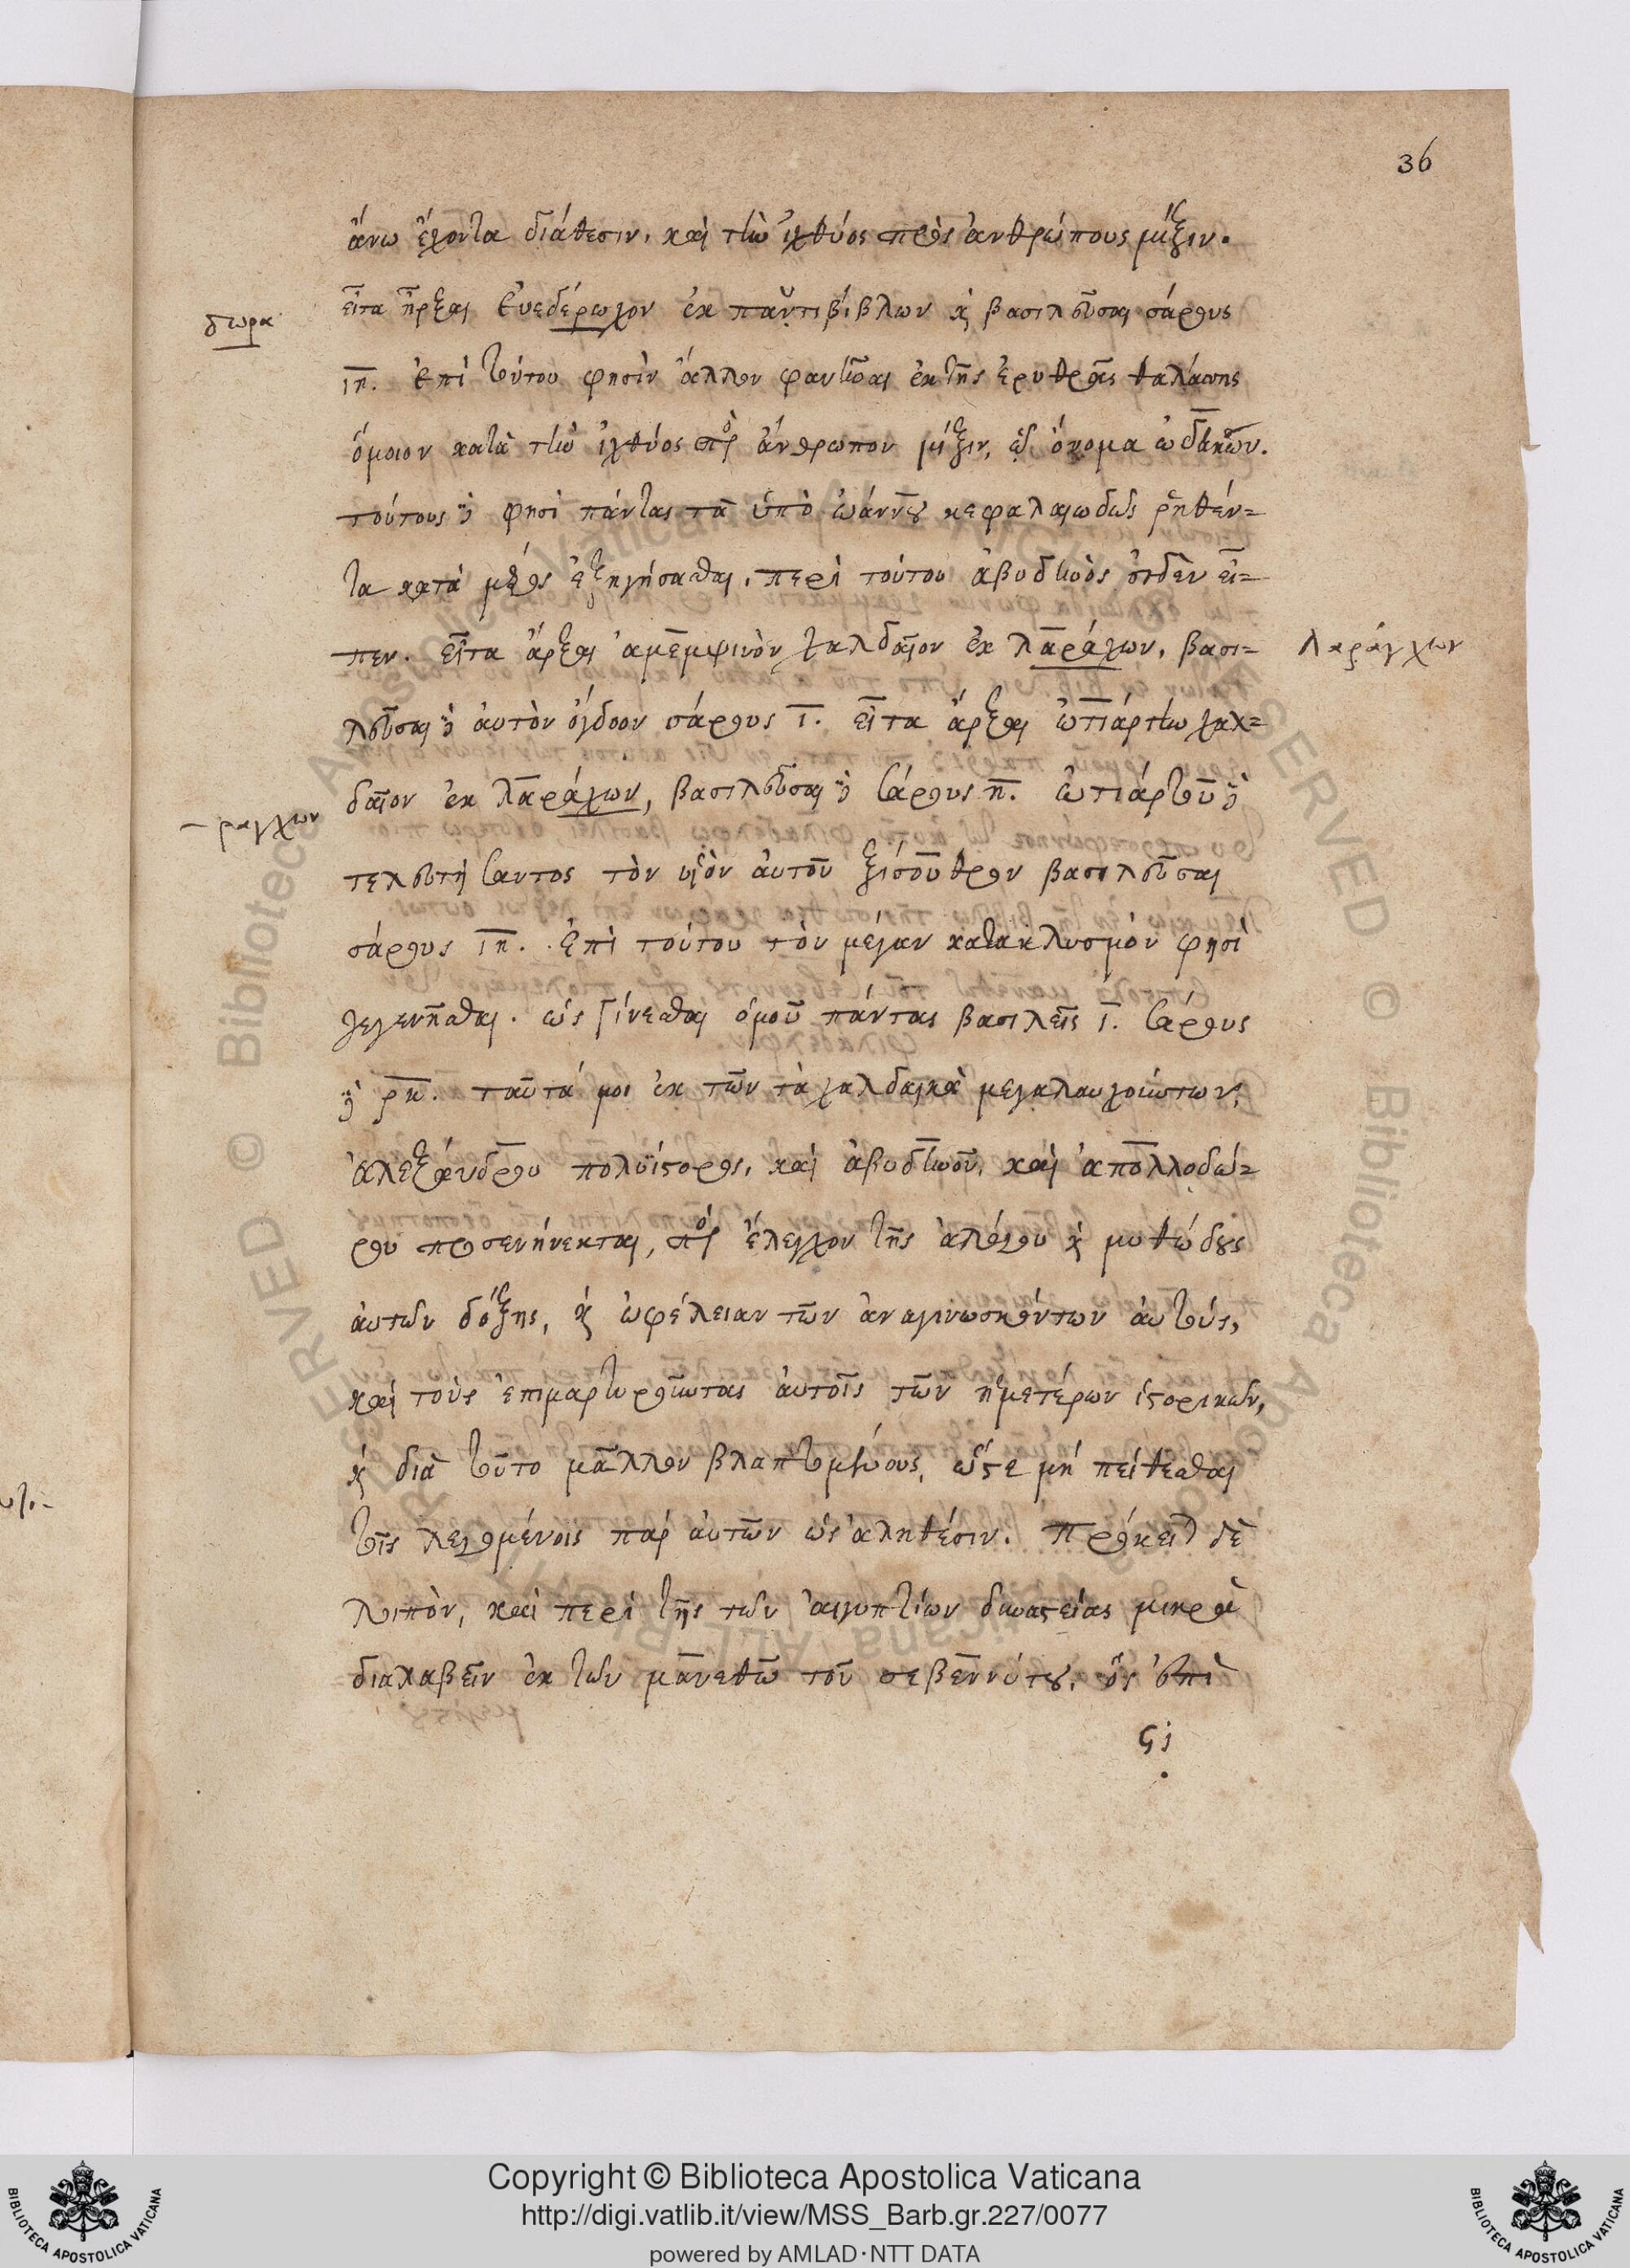 36
ἄνω ἔχοντα διάθεσιν, καὶ τὴν ἰχθύος πρὸς ἀνθρώπους μίξιν.
εἶτα ἦρξαι Εὐεδέρωχον ἐκ παντιβίβλων κ βασιλεῦσαι σάρους
δωρα
ιη. ἐπὶ τούτου φησὶν ἄλλον φανῆναι ἐκ τῆς ἐρυθρᾶς θαλάσσης
ὅμοιον κατὰ τὴν ἰχθύος πρὸς ἄνθρωπον μίξιν, ᾧ ὄνομα ὠδάκων.
τούτους δέ φησι πάντας τὰ ὑπὸ ὠάννου κεφαλαιωδῶς ῥηθέν=
τα κατὰ μέρος ἐξηγήσασθαι. περὶ τούτου ἀβυδηνὸς οὐδὲν εἶ=
πεν. εἶτα ἄρξαι ἀμεμψινὸν χαλδαῖον ἐκ λαράχων, βασι=
Λαράγχων
λεῦσαι δὲ αὐτὸν ὄγδοον σάρους ι. εἶτα ἄρξαι ὠτιάρτην χαλ=
δαῖον ἐκ λαράχων, βασιλεῦσαι δὲ σάρους η. ὠτιάρτου δὲ
– ραγχων
τελευτήσαντος τὸν υἱὸν αὐτοῦ ξίσουθρον βασιλεῦσαι
σάρους ιη. Ἐπὶ τούτου τὸν μέγαν κατακλυσμόν φησι
γεγενῆσθαι. ὡς γίνεσθαι ὁμοῦ πάντας βασιλεῖς ι. σάρους
δὲ ρκ. ταῦτά μοι ἐκ τῶν τὰ χαλδαϊκὰ μεγαλαυχούντων,
ἀλεξάνδρου πολυΐστορος, καὶ ἀβυδηνοῦ, καὶ ἀπολλοδώ=
ρου προσενήνεκται, πρὸς ἔλεγχον τῆς ἀλόγου κ μυθώδους
αὐτῶν δόξης, κ ὠφέλειαν τῶν ἀναγινωσκόντων αὐτούς,
καὶ τοὺς ἐπιμαρτυροῦντας αὐτοῖς τῶν ἡμετέρων ἱστορικῶν,
κ διὰ τοῦτο μᾶλλον βλαπτομένους, ὥστε μὴ πείθεσθαι
τοῖς λεγομένοις παρ' αὐτῶν ὡς ἀληθέσιν. Πρόκειται δὲ
λοιπὸν, καὶ περὶ τῆς τῶν αἰγυπτίων δυναστείας μικρὰ
διαλαβεῖν ἐκ τῶν μανεθῶ τοῦ σεβεννύτου, ὃς ἐπὶ
ϛι
Copyright © Biblioteca Apostolica Vaticana
http://digi.vatlib.it/view/MSS_Barb.gr.227/0077
powered by AMLAD·NTT DATA